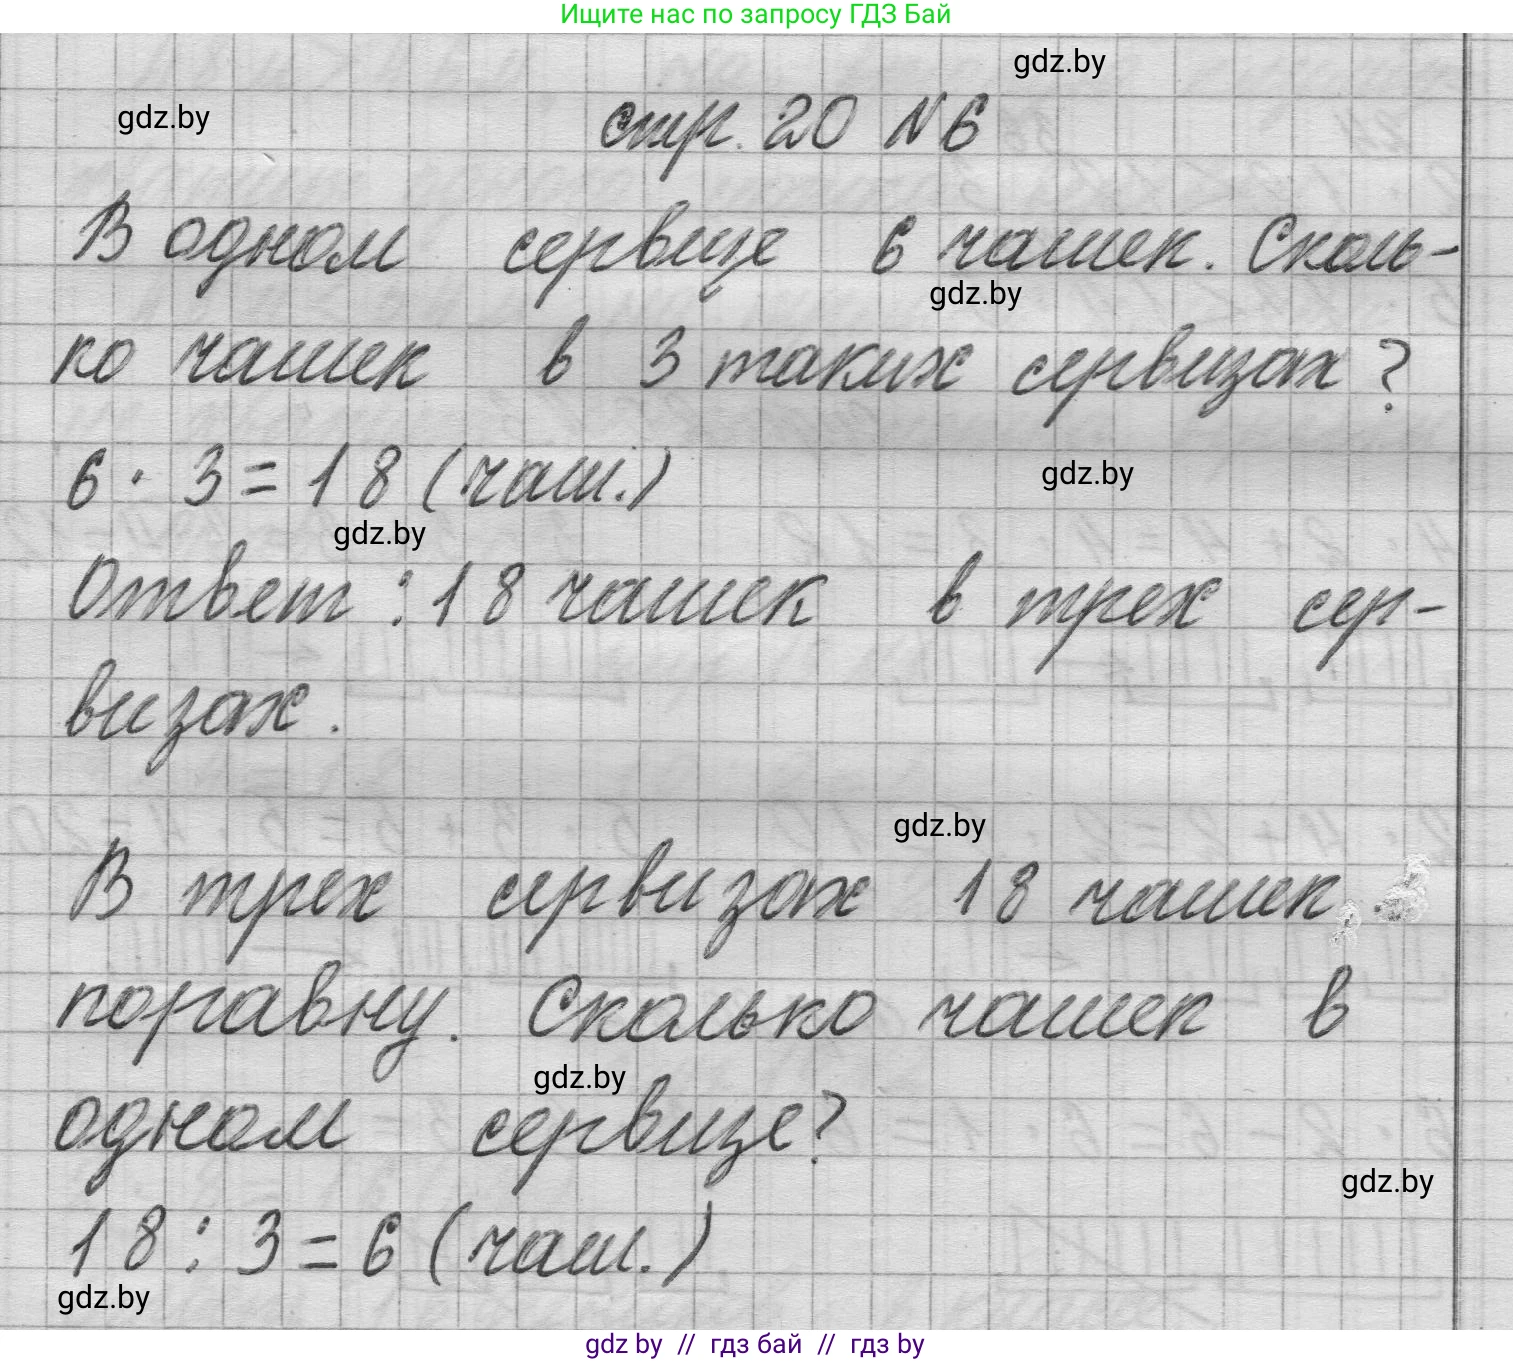 Ищите нас по запросу ГДЗ Бай
gdz.by
gdz.by
стр. 20 N6
В одном сервизе 6 чашек. Сколь-
gdz.by
ко чашек в 3 таких сервизах?
6 · 3 = 18 (чаш.)
gdz.by
gdz.by
Ответ: 18 чашек в трех сер-
визах.
gdz.by
В трех сервизах 18 чашек
поравну. Сколько чашек в
gdz.by
одном сервизе?
gdz.by
18 : 3 = 6 (чаш.)
gdz.by
gdz by // гдз бай // гдз by